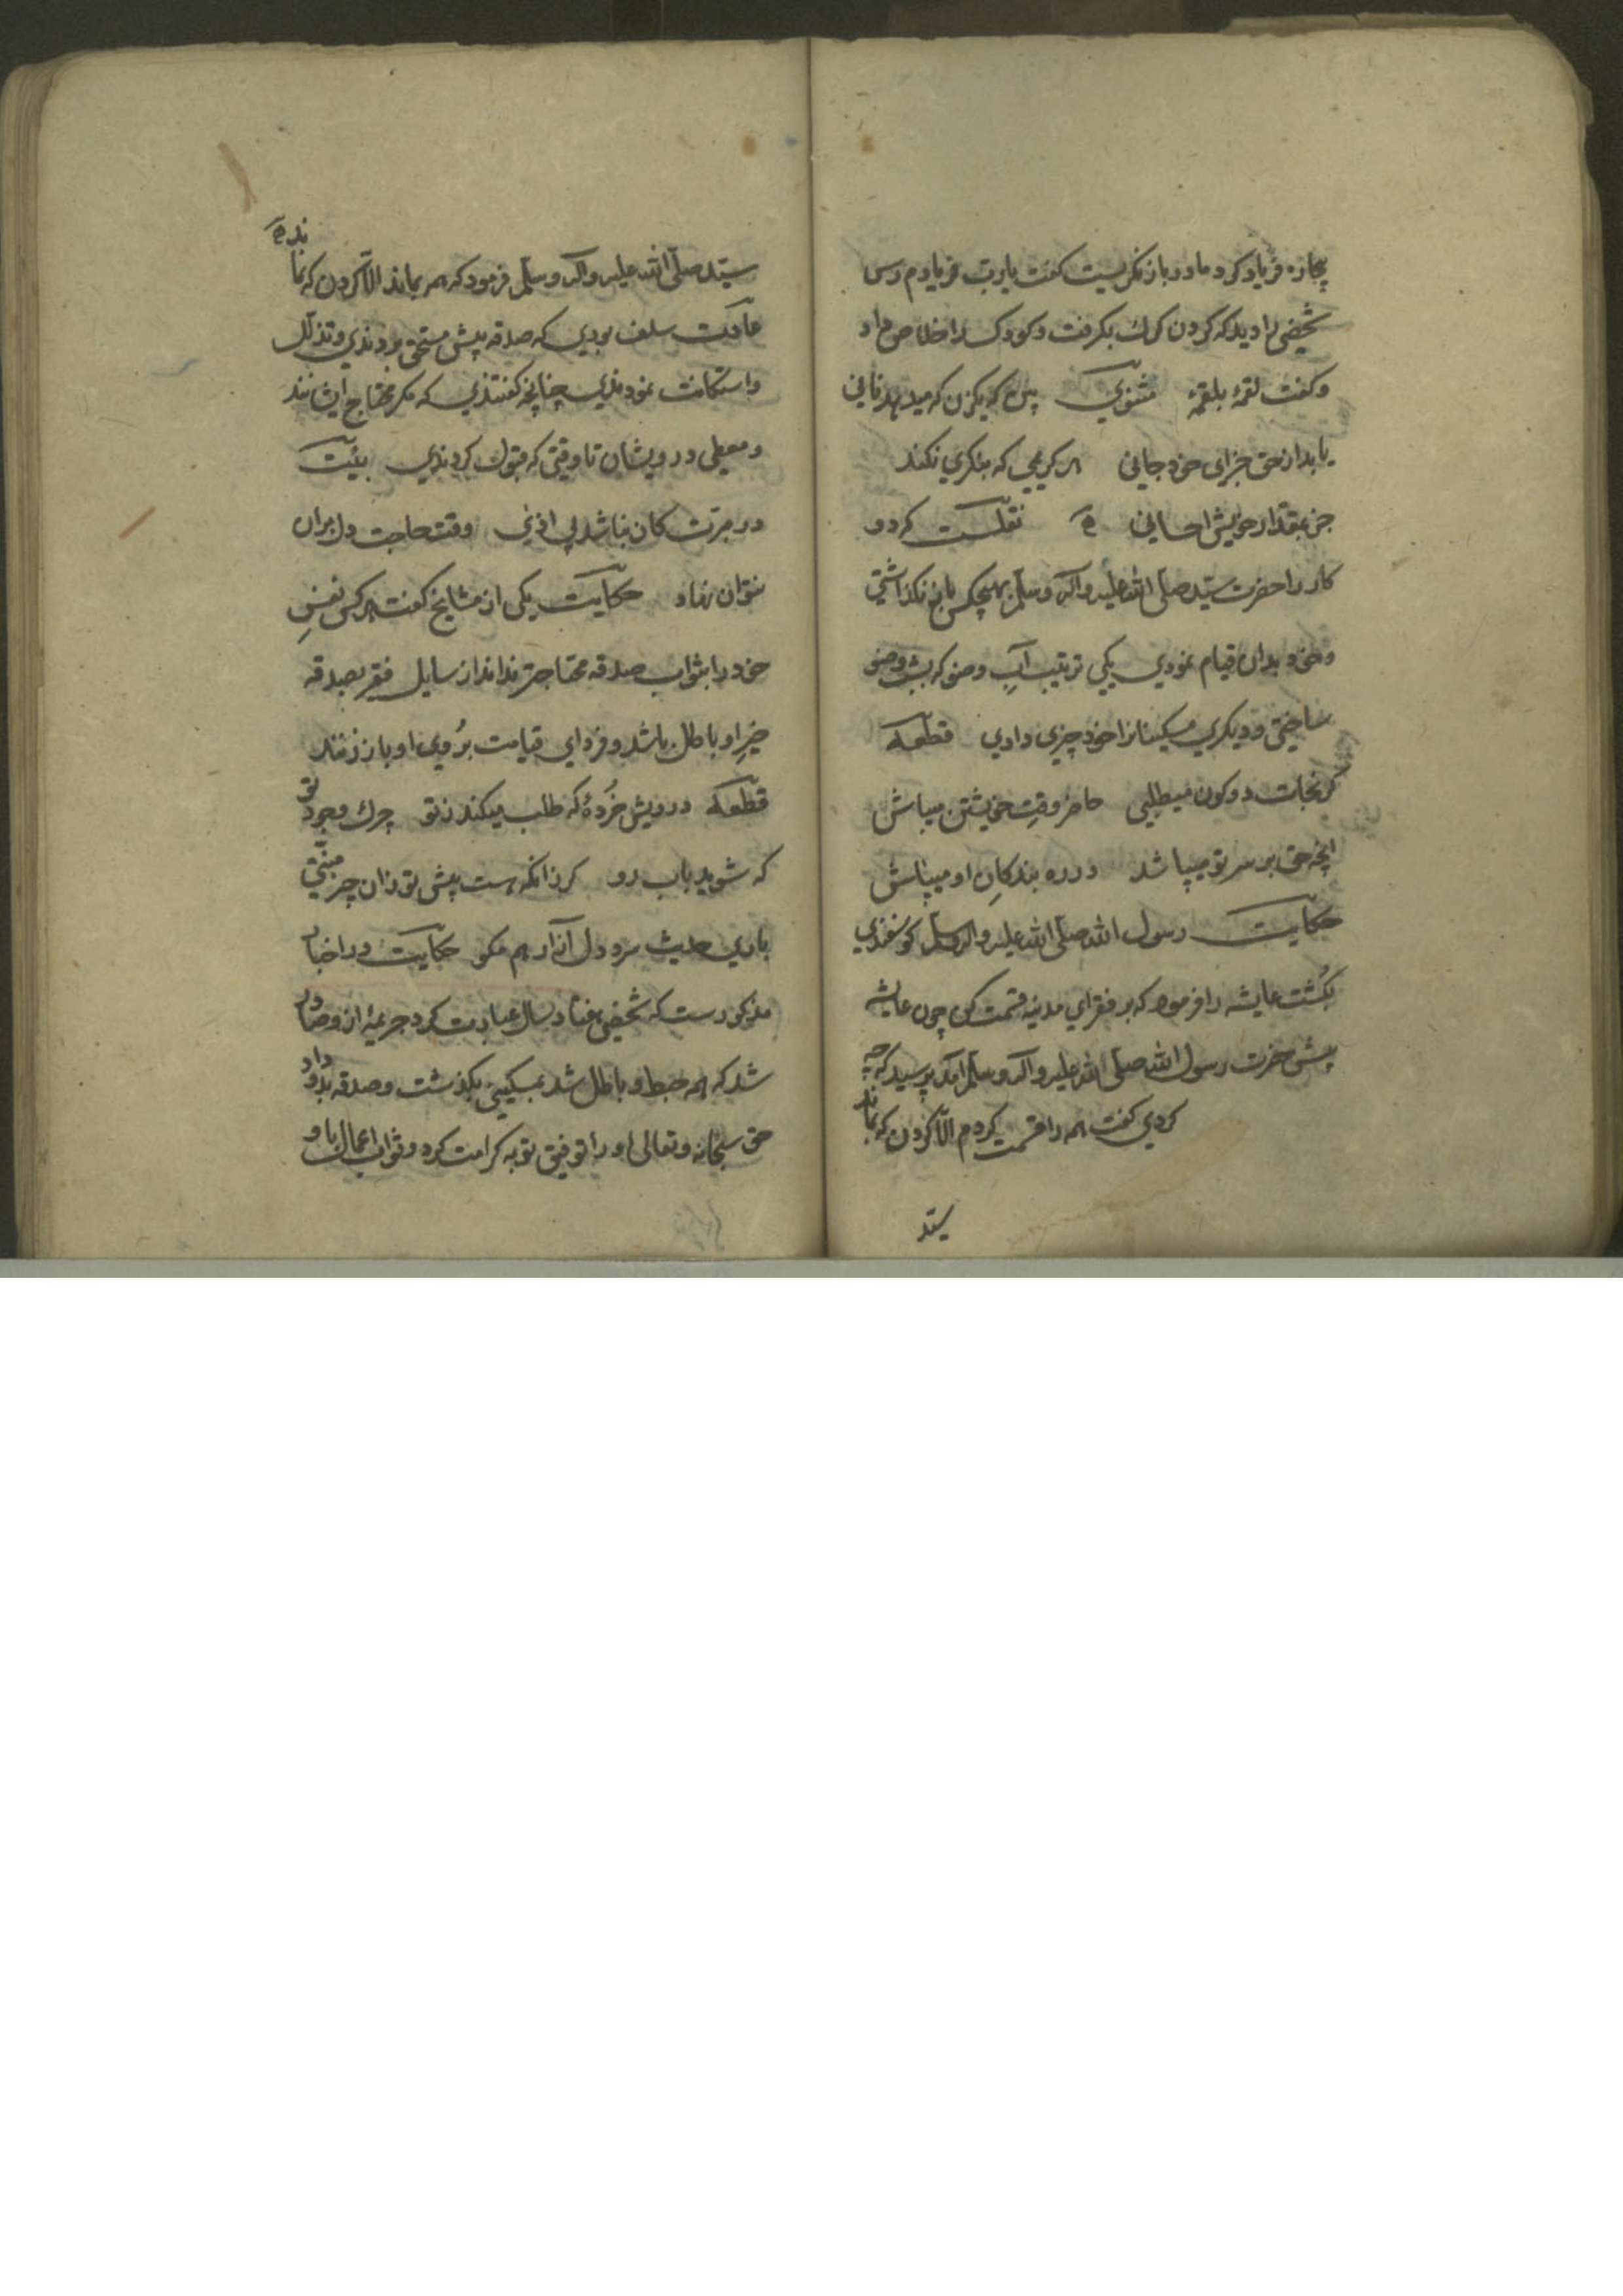 بیچاره فریاد کرد مادر باز نکریست کفت یا رب فریادم رس
شخصی را دید که کردن کرک بکرفت و کودک را خلاص داد
و کفت لقمهٔ بلقمهٔ مثنوی که میدهد نانی
یابد از حق جزای خود جانی هر کریمی که منکری نکند
جز بمقدار خویش احسانی نقلست که دو
کار را حضرت سید صلی الله علیه وآله وسلم بهیچکس باز نکذاشتی
و خود بدان قیام نمودی یکی ترتیب آب وضو که بشب وضو
ساختی و دیکری مسکینانرا خود چیزی دادی قطعه
کر نجات دو کون میطلبی حاضر وقت خویشتن میباش
انچه حق بر سر تو میپاشد در ره بندکان او میپاش
حکایت رسول الله صلی الله علیه وآله وسلم کوسفندی
بکُشت عایشه را فرمود که بر فقرای مدینه قسمت کن چون عایشه
پیش حضرت رسول الله صلی الله علیه وآله وسلم آمد پرسید که چه
کردی کفت همه را قسمت کردم الا کردن که بماند
سید
سید صلی الله علیه وآله وسلم فرمود که همه بماند الا کردن که نماند
عادت سلف بودی که صدقه پیش مستحق بردندی و تذلل
و استکانت نمودندی چنانچه کفتندی که مکر محتاج ایشانند
و معطی درویشان تا وقتی که قبول کردندی بیت
در مبرّت کان نباشد بی اذی وقت حاجت دل بران
نتوان نهاد حکایت یکی از مشایخ کفت هر کس نفس
خود را بثواب صدقه محتاجتر نداند از سایل فقیر بصدقه
خیر او باطل باشد و فردای قیامت بروی او باز زنند
قطعه درویش خُردهٔ که طلب میکند ز تو چرک وجود تو
که شوید باب رو کر زانکه هست پیش تو زان چیز منتی
باری حدیث سرد دل آزار هم مکو حکایت در اخبار
مذکورست که شخصی هفتاد سال عبادت کرد جریمهٔ ازو صادر
شد که همه حبط و باطل شد بمسکینی بکذشت و صدقه بدو داد
حق سبحانه و تعالی او را توفیق توبه کرامت کرد و ثواب اعمال باو